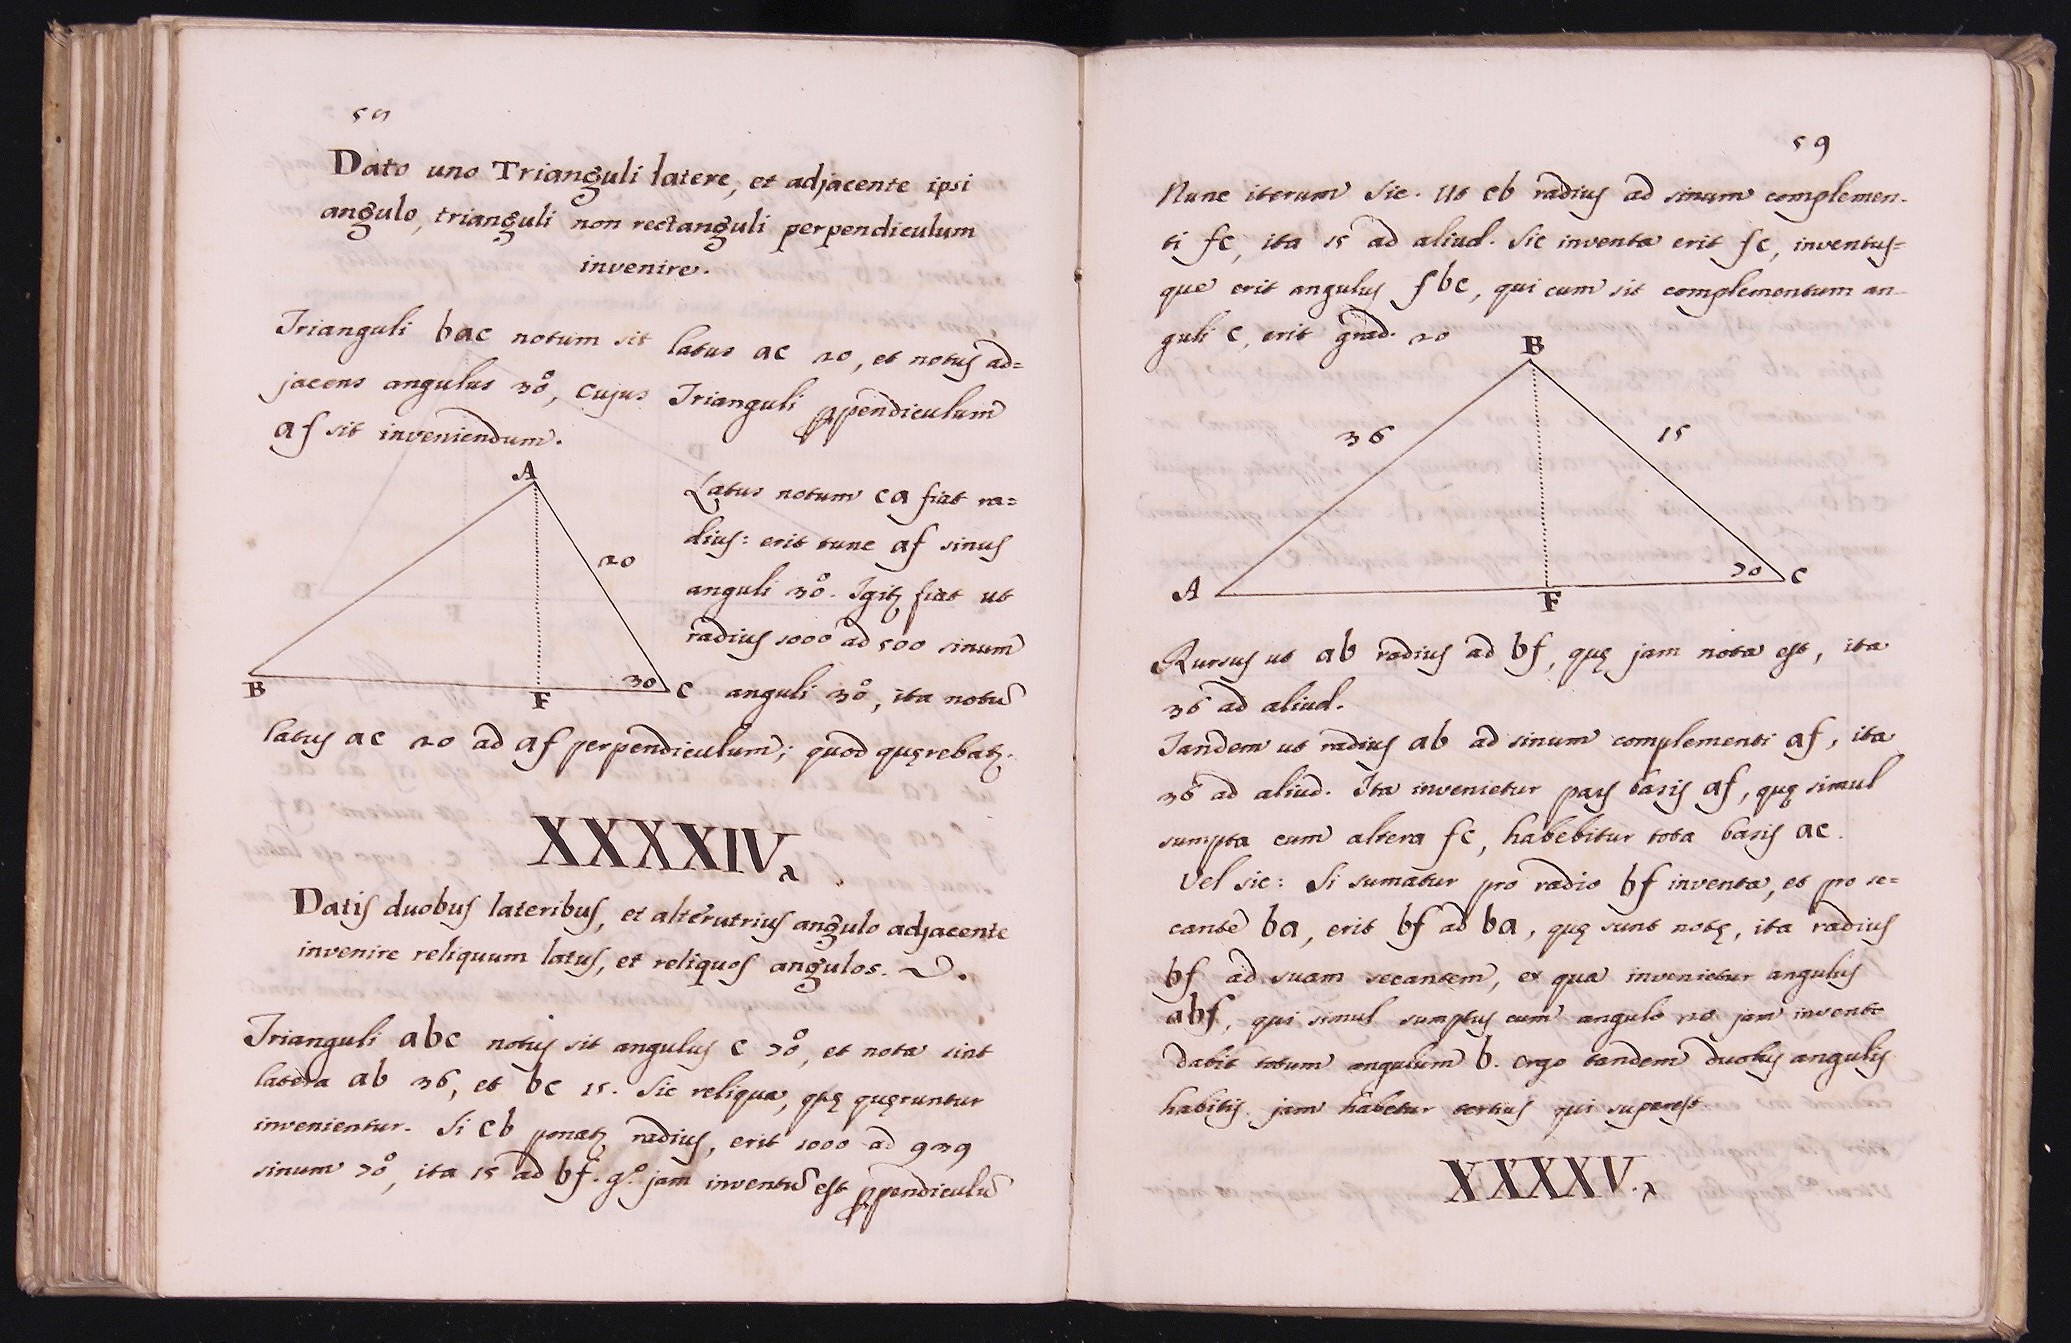 58
Dato uno Trianguli latere, et adjacente ipsi
angulo, trianguli non rectanguli perpendiculum
invenire.
Trianguli bac notum sit latus ac 20, et notus ad=
jacens angulus 30°, cujus Trianguli ꝑpendiculum
af sit inveniendum.
A
20
B
F
30
C
Latus notum ca fiat ra=
dius: erit tunc af sinus
anguli 30°. Igitꝛ fiat ut
radius 1000 ad 500 sinum
anguli 30°, ita notũ
latus ac 20 ad af perpendiculum; quod quęrebatꝛ.
XXXXIV.
Datis duobus lateribus, et alterutrius angulo adjacente
invenire reliquum latus, et reliquos angulos.
Trianguli abc notus sit angulus c 70°, et nota sint
latera ab 36, et bc 15. Sic reliqua, quę quęruntur
invenientur. Si cb ponatꝛ radius, erit 1000 ad 939
sinum 70°, ita 15 ad bf. gº. jam inventũ est ꝑpendiculũ
59
Nunc iterum sic. Ut cb radius ad sinum complemen-
ti fc, ita 15 ad aliud. Sic inventa erit fc, inventus=
que erit angulus fbc, qui cum sit complementum an-
guli c, erit grad. 20
B
36
15
A
F
70
C
Rursus ut ab radius ad bf, quę jam nota est, ita
36 ad aliud.
Tandem ut radius ab ad sinum complementi af, ita
36 ad aliud. Ita invenietur pars basis af, quę simul
sumpta cum altera fc, habebitur tota basis ac.
Vel sic: Si sumatur pro radio bf inventa, et pro se=
cante ba, erit bf ad ba, quę sunt notę, ita radius
bf ad suam secantem, ex qua invenietur angulus
abf, qui simul sumptus cum angulo 20 jam invento
dabit totum angulum b. ergo tandem duobus angulis
habitis jam habetur tertius qui superest.
XXXXV.